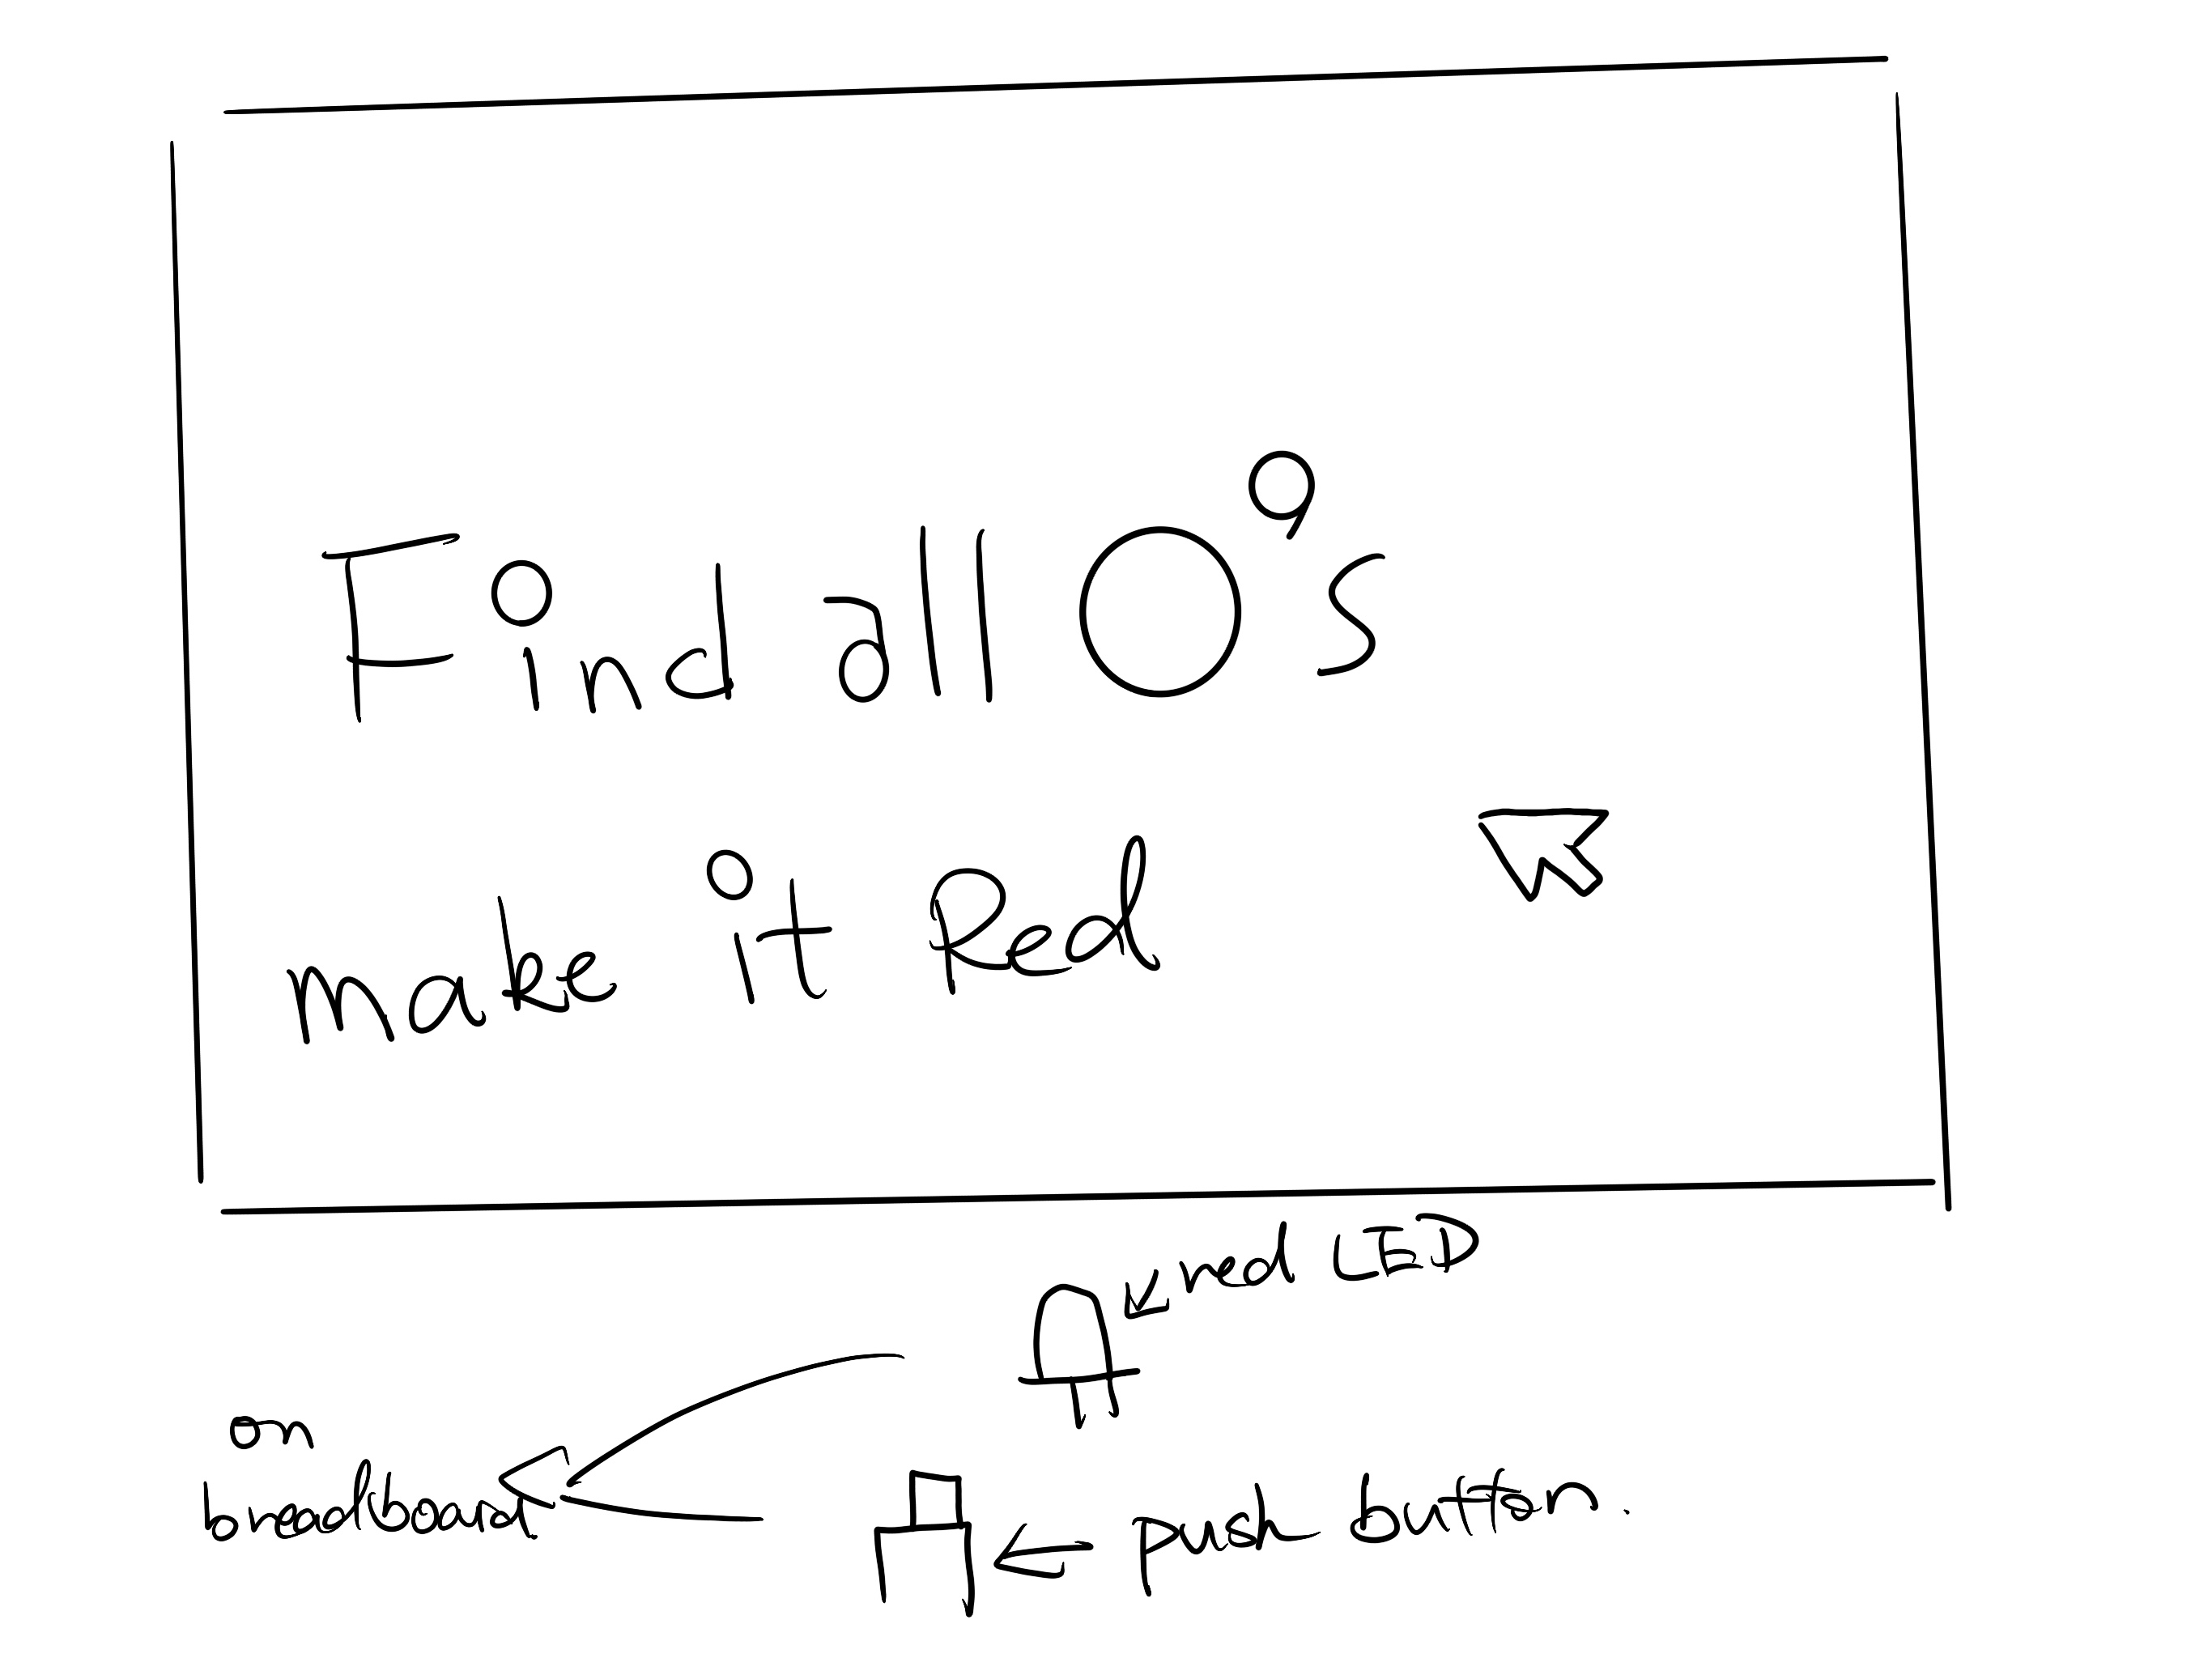 Find all O's
Make it Red
red LED
on
breadboard
push button.